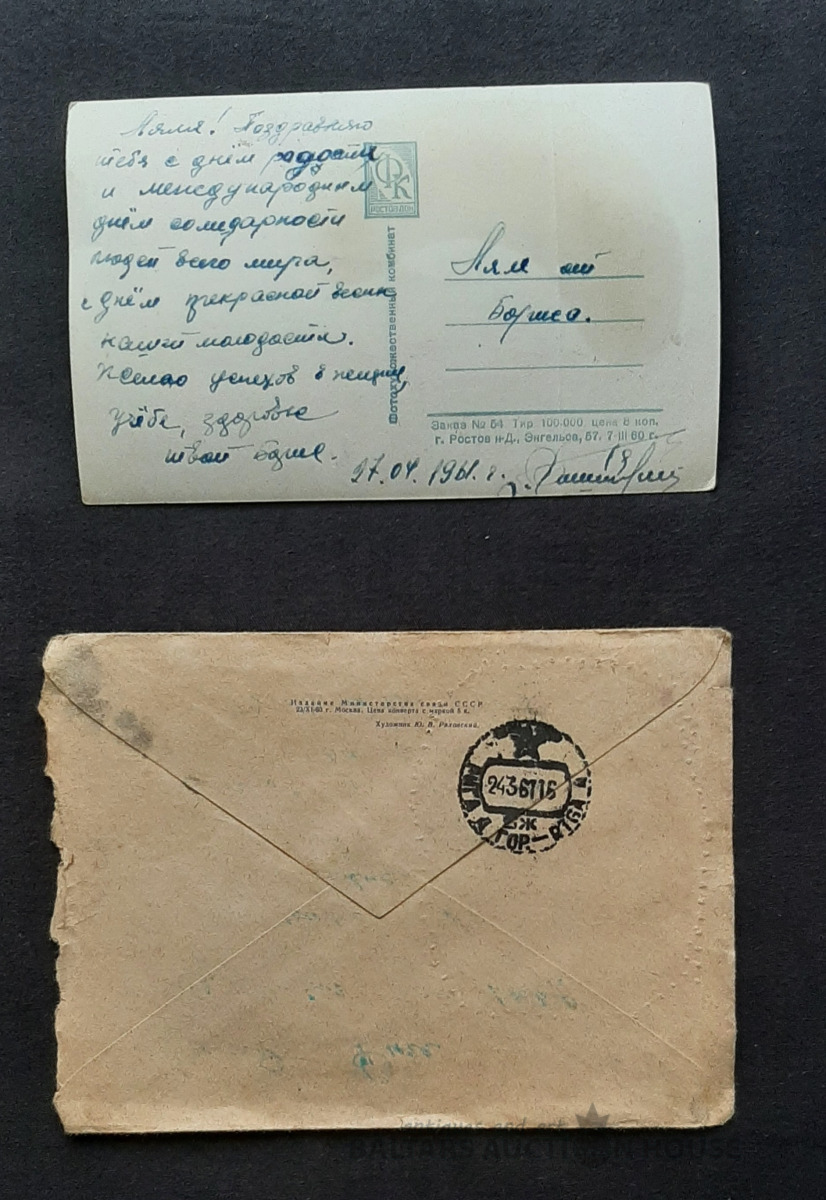 Ляля! Поздравляю
тебя с днём радости
и международным
днём солидарности
людей всего мира,
с днём прекрасной весны
нашей молодости.
Желаю успехов в жизни,
учёбе, здоровья
твой
27.04.1961 г.
ФК
РОСТОВДОН
Фотохудожественный комбинат
Ляле от
Бориса.
Заказ № 54 Тир. 100.000, цена 8 коп.
г. Ростов н-Д., Энгельса, 57. 7-III 60 г.
Издание Министерства связи СССР
23/XI-60 г. Москва. Цена конверта с маркой 5 к.
Художник Ю. В. Ряховский.
РИГА
24361716
ГОР.—RIGA
antiques and art
BALTARS AUCTION HOUSE